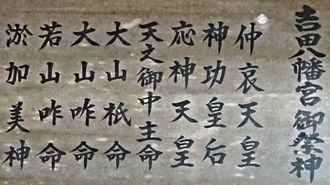 吉田八幡宮御祭神
仲哀天皇
神功皇后
応神天皇
天之御中主命
大山祇命
大山咋命
若山咋命
淤加美神